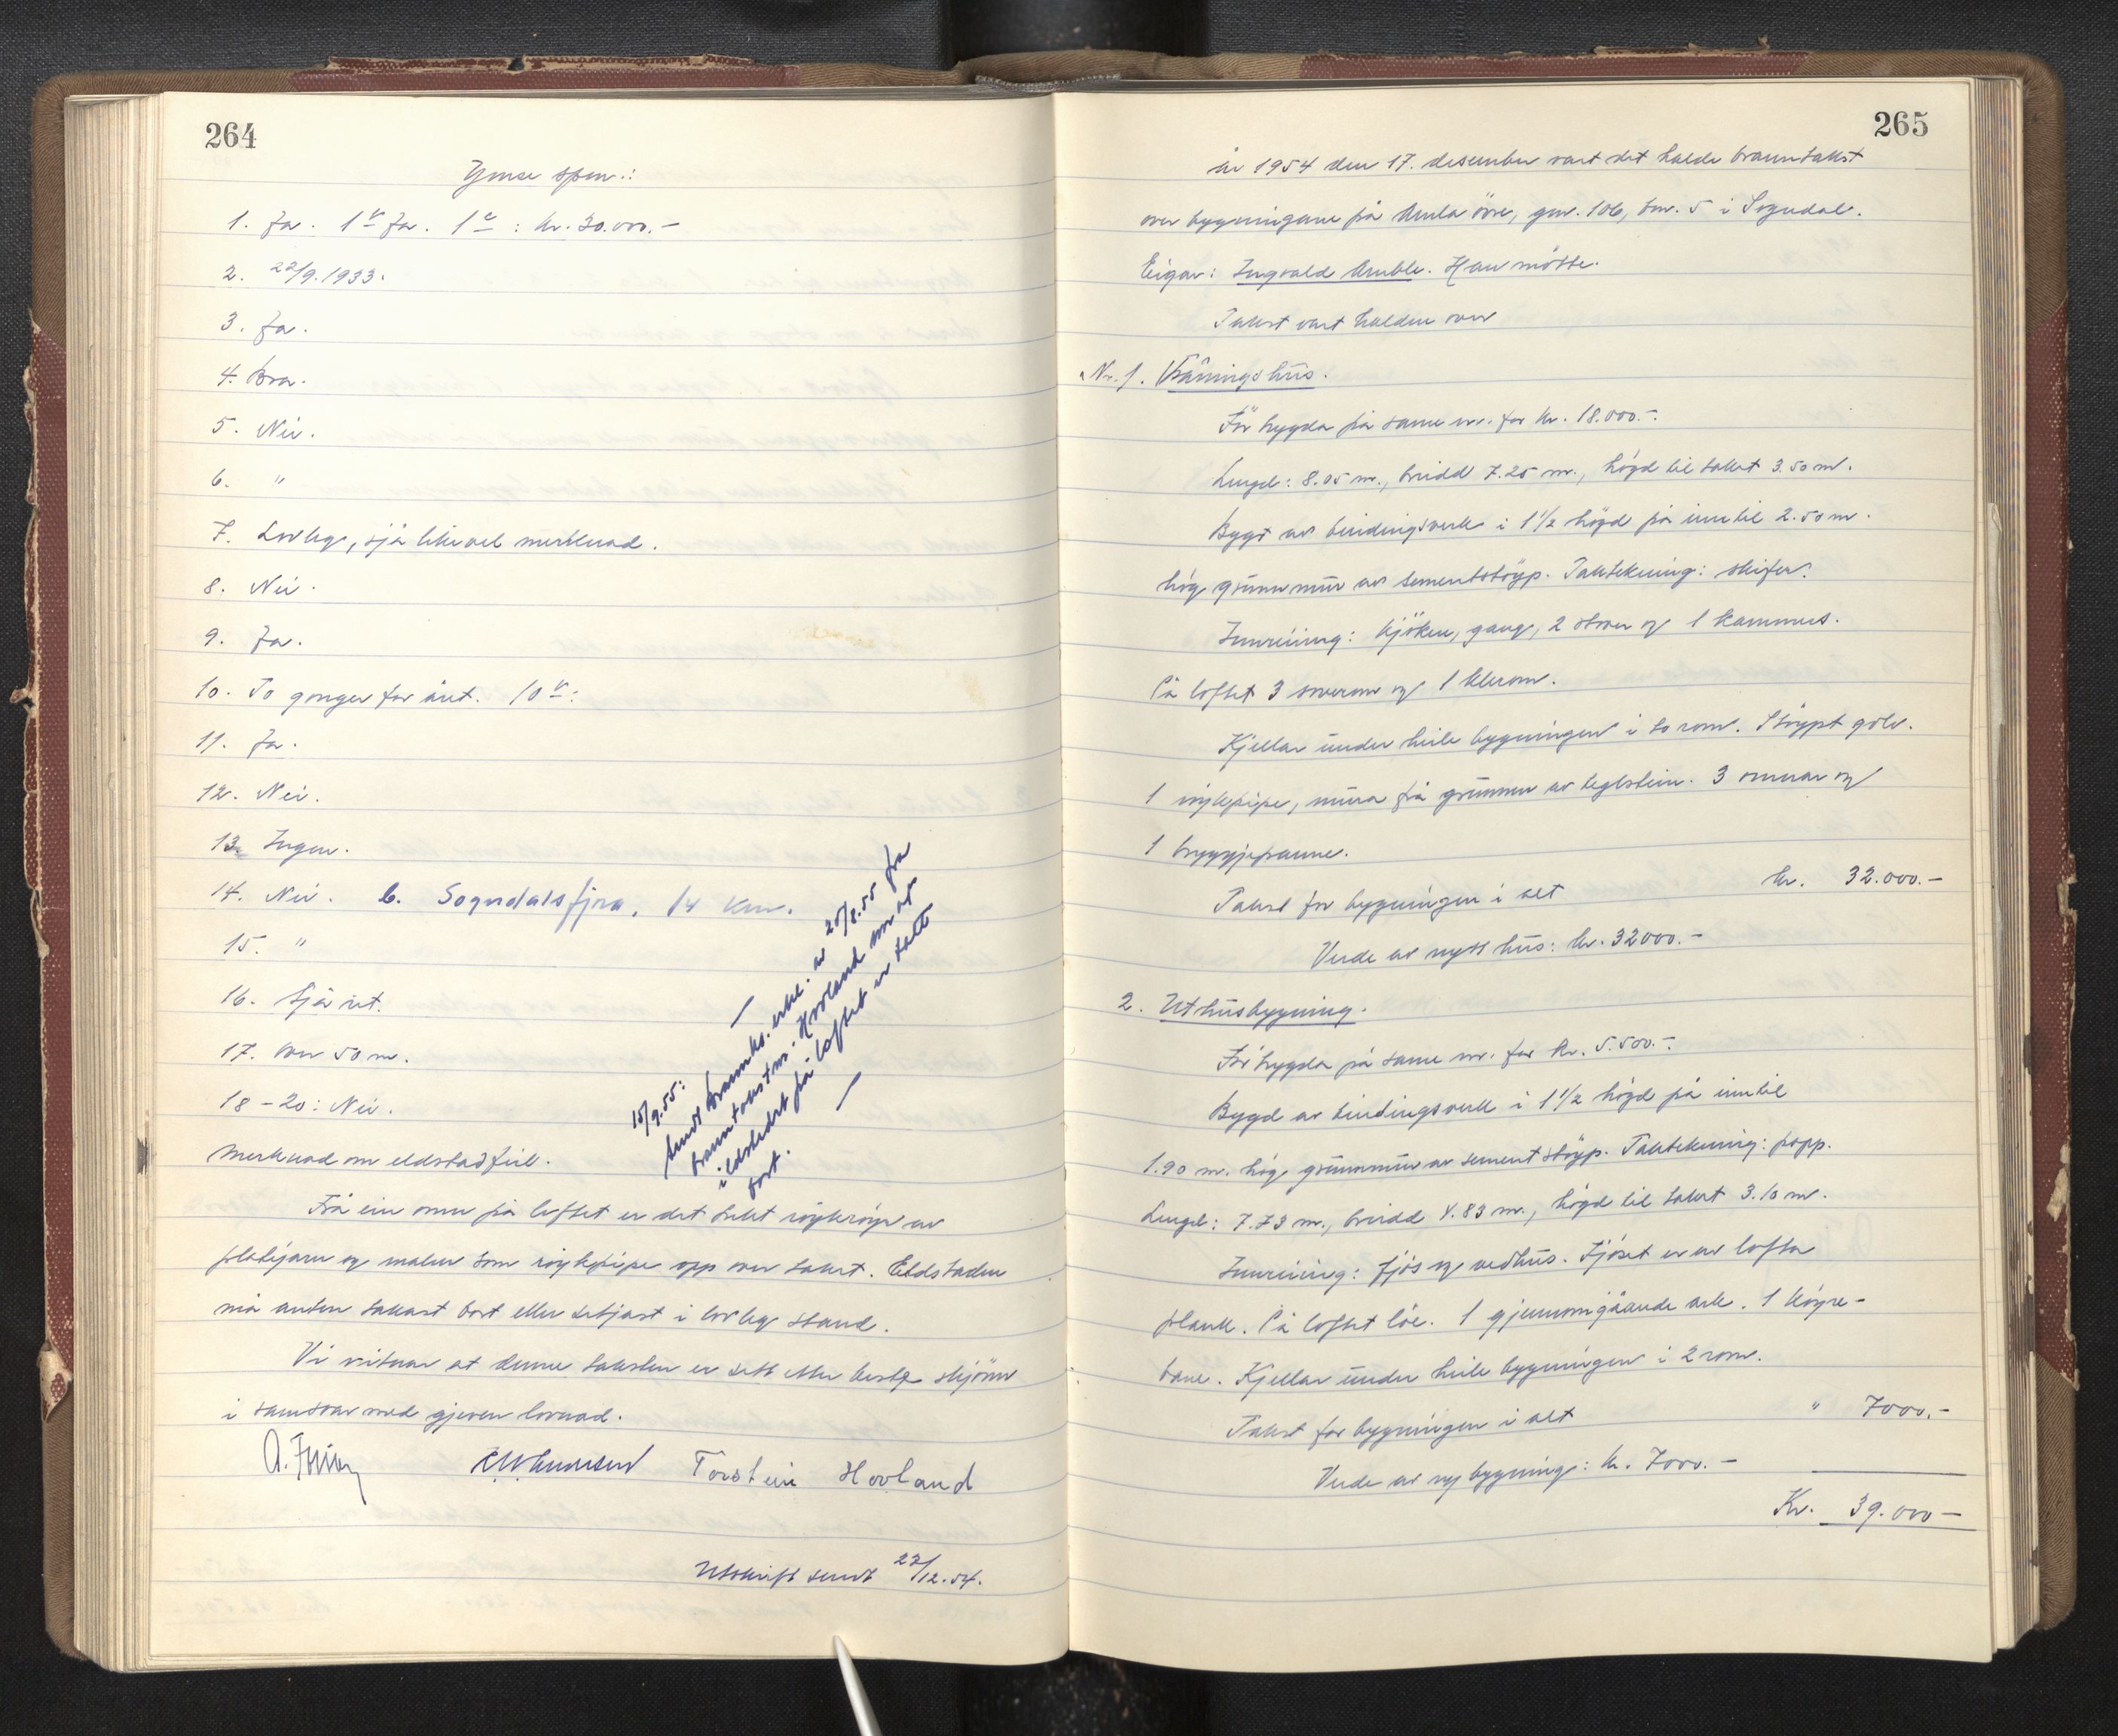 264
Ymse spm.:
1. Ja. 1b Ja. 1c : kr. 30.000.-
2. 22/9.1933.
3. Ja.
4. Bra.
5. Nei.
6. "
7. Lovleg, sjå likevel merknad.
8. Nei.
9. Ja.
10. To gonger for året. 10b:
11. Ja.
12. Nei.
13. Ingen.
14. Nei. b. Sogndalsfjøra, 14 km.
15. "
16. Sjå rit.
17. Over 50 m.
18-20: Nei.
Merknad om eldstadfeil.
Frå ein omn på loftet er det sett røykrøyr av
platejarn og malm som røykpipe opp over taket. Eldstaden
må anten takast bort eller setjast i lovleg stand.
Vi vitnar at denne taksten er sett etter beste skjönn
i samsvar med gjeven lovnad.
Torstein Hovland
Utskrift sendt 22/12.54.
15/9.55:
Sendt brannk. erkl. av 25/8.55 fra
branntakstm. Hovland om at
ildstedet på loftet er tatt
bort.
265
År 1954 den 17. desember vart det halde branntakst
over bygningane på Amla övre, gnr. 106, bnr. 5 i Sogndal.
Eigar: Ingvald Amble. Han mötte.
Takst vart halden over
Nr. 1. Våningshus.
Før trygda på same nr. for kr. 18.000.-
Lengd: 8.05 m., breidd 7.25 m., högd til taket 3.50 m.
Bygt av bindingsverk i 1 1/2 högd på inntil 2.50 m.
høg grunnmur av sementstöyp. Taktekning: skifer.
Innreiing: Kjöken, gang, 2 stover og 1 kammers.
På loftet 3 soverom og 1 klerom.
Kjellar under heile bygningen i to rom. Støypt golv.
1 røykpipe, mura frå grunnen av teglstein. 3 omnar og
1 bryggjepanne.
Takst for bygningen i alt kr. 32.000.-
Verde av nytt hus: kr. 32000.-
2. Uthusbygning.
Før trygda på same nr. for kr. 5.500.-
Bygd av bindingsverk i 1 1/2 högd på inntil
1.90 m. høg grunnmur av sementstöyp. Taktekning: papp.
Lengd: 7.73 m., breidd 4.83 m., högd til taket 3.10 m.
Innreiing: fjös og vedhus. Fjöset er av lofta
plank. På loftet löe. 1 gjennomgåande ark. 1 köyre-
bane. Kjellar under heile bygningen i 2 rom.
Takst for bygningen i alt " 7000.-
Verde av ny bygning: kr. 7000.-
Kr. 39.000-